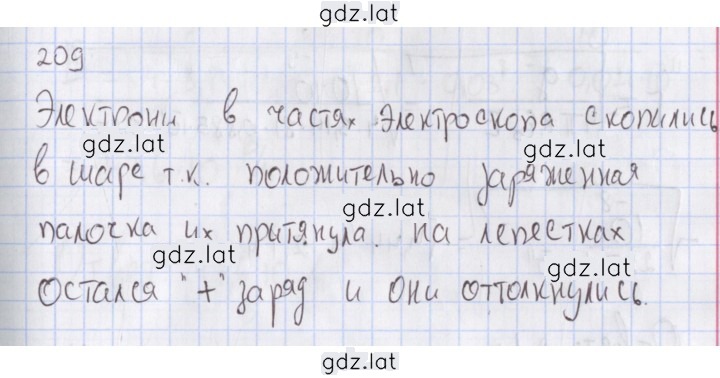 gdz.lat
209
Электрони в частях электроскопа скопились
gdz.lat
в шаре т.к. положительно заряженная
gdz.lat
палочка их притянула. на лепестках
gdz.lat
gdz.lat
остался "+" заряд и они оттолкнулись.
gdz.lat